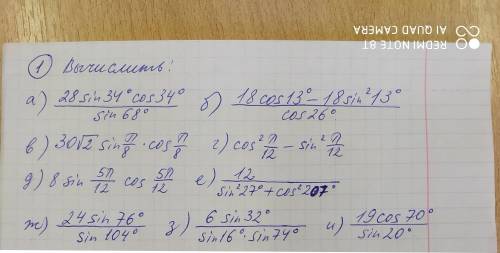 REDMI NOTE 8T
AI QUAD CAMERA
① Вычислить:
а) 28 sin 34° cos 34° / sin 68° б) 18 cos 13° − 18 sin² 13° / cos 26°
в) 30√2 sin π/8 · cos π/8 г) cos² π/12 − sin² π/12
д) 8 sin 5π/12 cos 5π/12 е) 12 / sin² 27° + cos² 207°
ж) 24 sin 76° / sin 104° з) 6 sin 32° / sin 16° · sin 74° и) 19 cos 70° / sin 20°